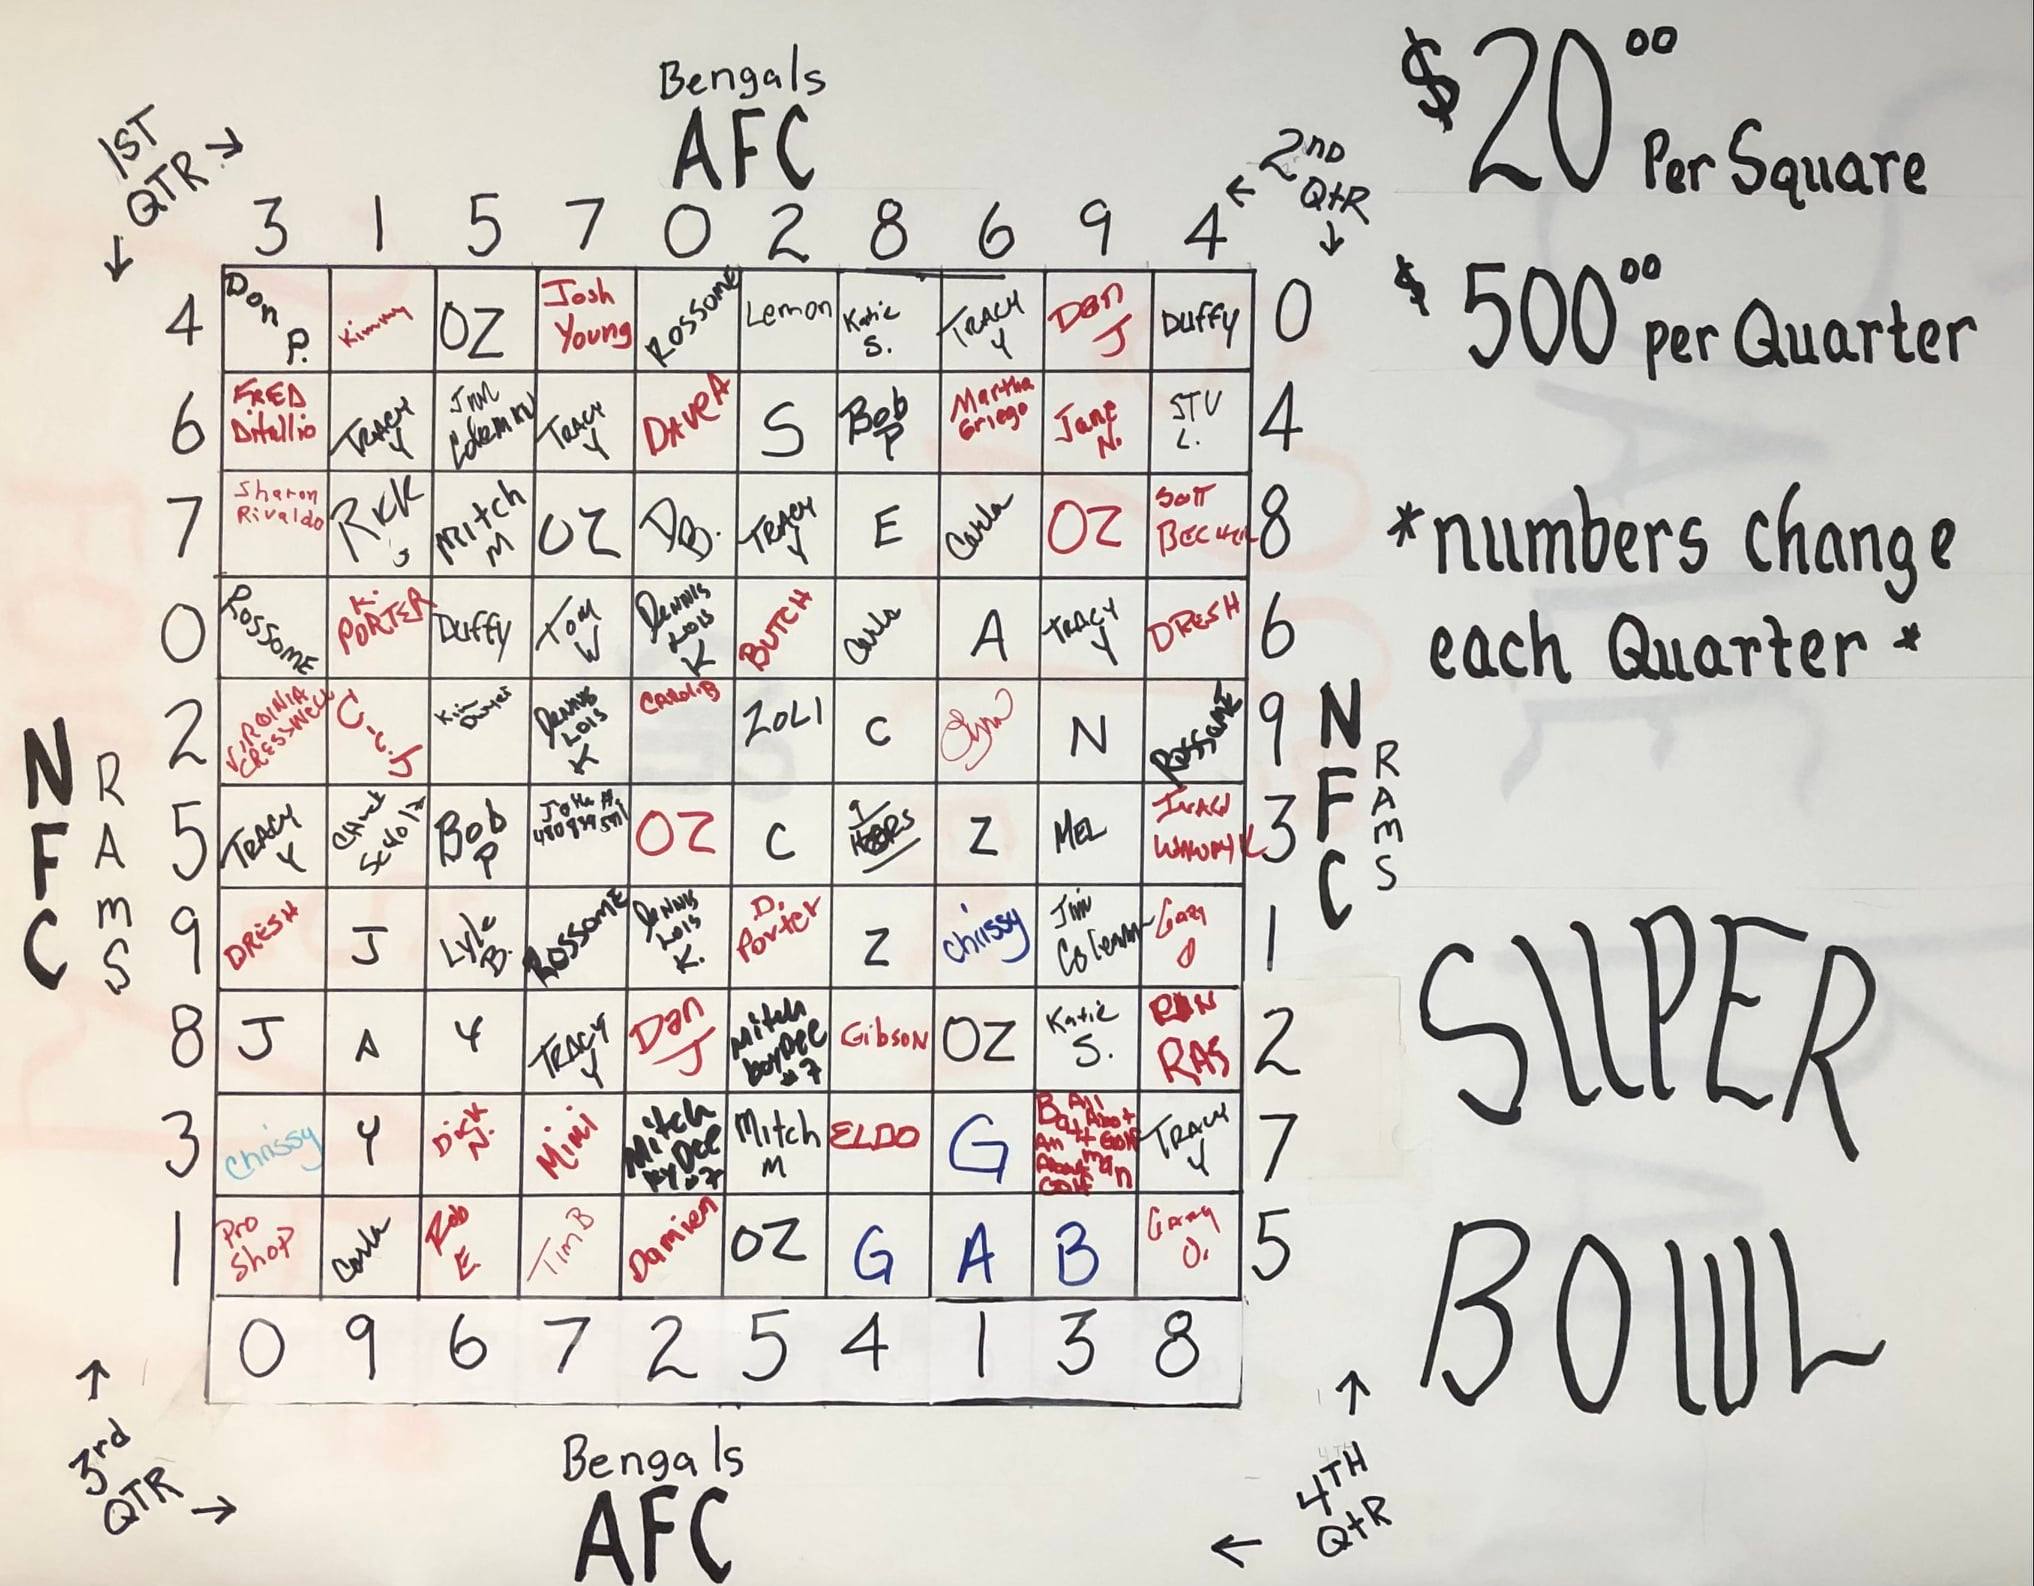 Bengals
AFC
1ST
QTR →
↓
2nd
QtR
←
↓
3 1 5 7 0 2 8 6 9 4
4 Don P. Kimmy OZ Josh Young Rossome Lemon Katie S. TRACY Y Dan J Duffy 0
6 FRED Ditullio TRACY Y Jim Coleman TRACY Y DAVE A S Bob P Martha Griego Jane N. STU L. 4
7 Sharon Rivaldo Rick J Mitch M OZ DB. TRACY Y E Carla OZ 8
0 Rossome K. PORTER Duffy Tom W Dennis Lois K BUTCH Carla A TRACY Y DRESH 6
2 VIRGINIA CRESSWELL C.C.J Kim Dwyer Dennis Lois K Carol B ZOLI C N Rossome 9
5 TRACY Y Chuck Bob P John OZ C Z MEL 3
9 DRESH J Lyle B. Rossome Dennis Lois K. D. Porter Z Chrissy Jim Coleman Gary O 1
8 J A Y TRACY Y Dan J Mitch Gibson OZ Katie S. RON RAS 2
3 Chrissy Y Dick N. Mimi Mitch Mitch M ELDO G TRACY Y 7
1 Pro Shop Carla Rob E. Tim B Damien OZ G A B Gary O. 5
0 9 6 7 2 5 4 1 3 8
NFC
RAMS
NFC
RAMS
↑
3rd
QTR →
Bengals
AFC
↑
4TH
QtR
←
$20.00 Per Square
$500.00 per Quarter
*numbers change
each Quarter*
SUPER
BOWL